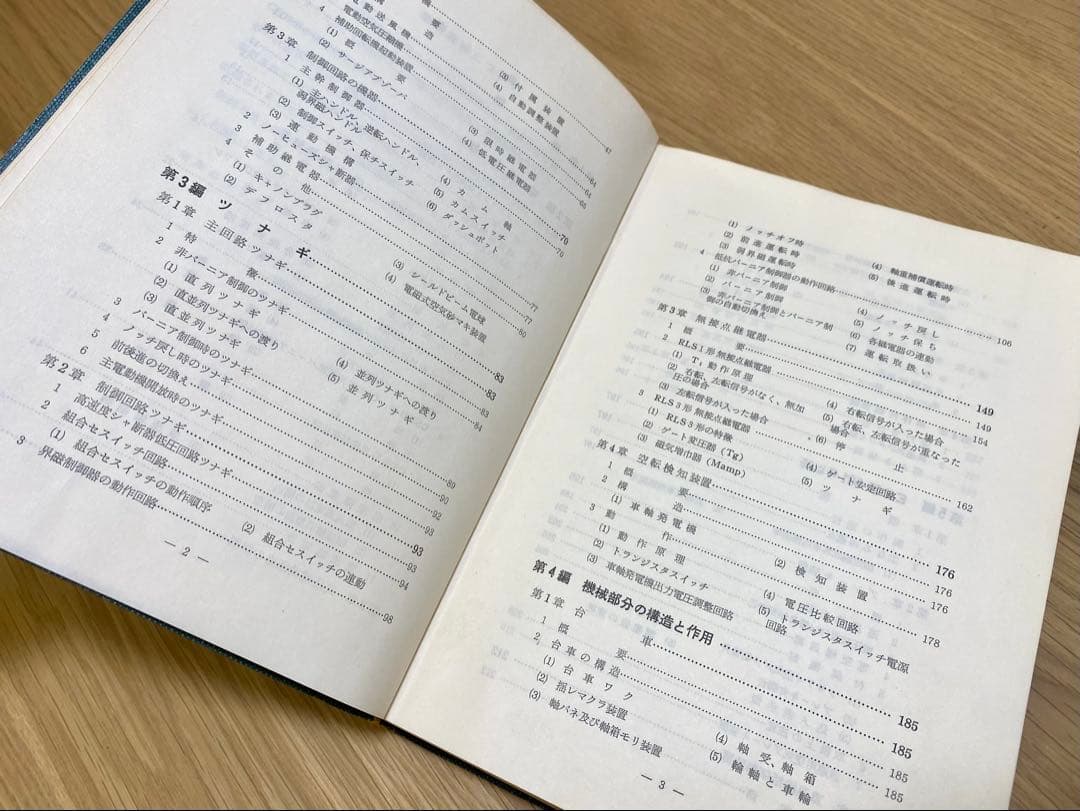 概要
構造
電動送風機
電動空気圧縮機 (3) 付属装置
4 補助回転機起動装置 (4) 自動調整装置 47
(1) 概要
(2) サージアブソーバ
第3章 制御回路の機器
1 主幹制御器 (3) 限時継電器
(1) 主ハンドル、逆転ハンドル、 (4) 低電圧継電器 64
弱界磁ハンドル 64
(2) 制御スイッチ、保チスイッチ 65
(3) 運動機構 (4) カム軸
2 ノーヒューズシャ断器 (5) カムスイッチ
3 補助継電器 (6) ダッシュポット
4 その他 70
(1) キャノンプラグ 70
(2) デフロスタ
第3編 ツナギ (3) シールドビーム電球
第1章 主回路ツナギ (4) 電磁式空気砂マキ装置 77
1 特徴 80
2 非バーニア制御のツナギ
(1) 直列ツナギ
(2) 直並列ツナギへの渡り
(3) 直並列ツナギ (4) 並列ツナギへの渡り 83
3 バーニア制御時のツナギ (5) 並列ツナギ 83
4 ノッチ戻し時のツナギ 84
5 前後進の切換え
6 主電動機開放時のツナギ
第2章 制御回路ツナギ 89
1 高速度シャ断器低圧回路ツナギ 90
2 組合セスイッチ回路 92
(1) 組合セスイッチの動作順序 93
3 界磁制御器の動作回路 93
(2) 組合セスイッチの連動 94
98
— 2 —
(1) ノッチオフ時
(2) 前進運転時
(3) 弱界磁運転時 (4) 軸重補償運転時
4 抵抗バーニア制御器の動作回路 (5) 後進運転時
(1) 非バーニア制御 106
(2) バーニア制御 (4) ノッチ戻し
(3) 非バーニア制御とバーニア制 (5) ノッチ保ち
御の自動切換え (6) 各継電器の連動
第3章 無接点継電器 (7) 運転取扱い
1 概要 149
2 RLS1形無接点継電器 149
(1) T₁動作原理 154
(2) 右転、左転信号がなく、無加 (4) 右転信号が入った場合
圧の場合 (5) 右転、左転信号が重なった
(3) 左転信号が入った場合 場合
3 RLS3形無接点継電器 (6) 停止
(1) RLS3形の特徴 162
(2) ゲート変圧器(Tg) (4) ゲート安定回路
(3) 磁気増巾器(Mamp) (5) ツナギ
第4章 空転検知装置 176
1 概要 176
2 構造 176
(1) 車軸発電機 (2) 検知装置
3 動作 178
(1) 動作原理 (4) 電圧比較回路
(2) トランジスタスイッチ (5) トランジスタスイッチ電源
(3) 車軸発電機出力電圧調整回路 回路
第4編 機械部分の構造と作用
第1章 台車 185
1 概要 185
2 台車の構造 185
(1) 台車ワク (4) 軸受、軸箱 185
(2) 揺レマクラ装置 (5) 輪軸と車輪
(3) 軸バネ及び軸箱モリ装置
— 3 —